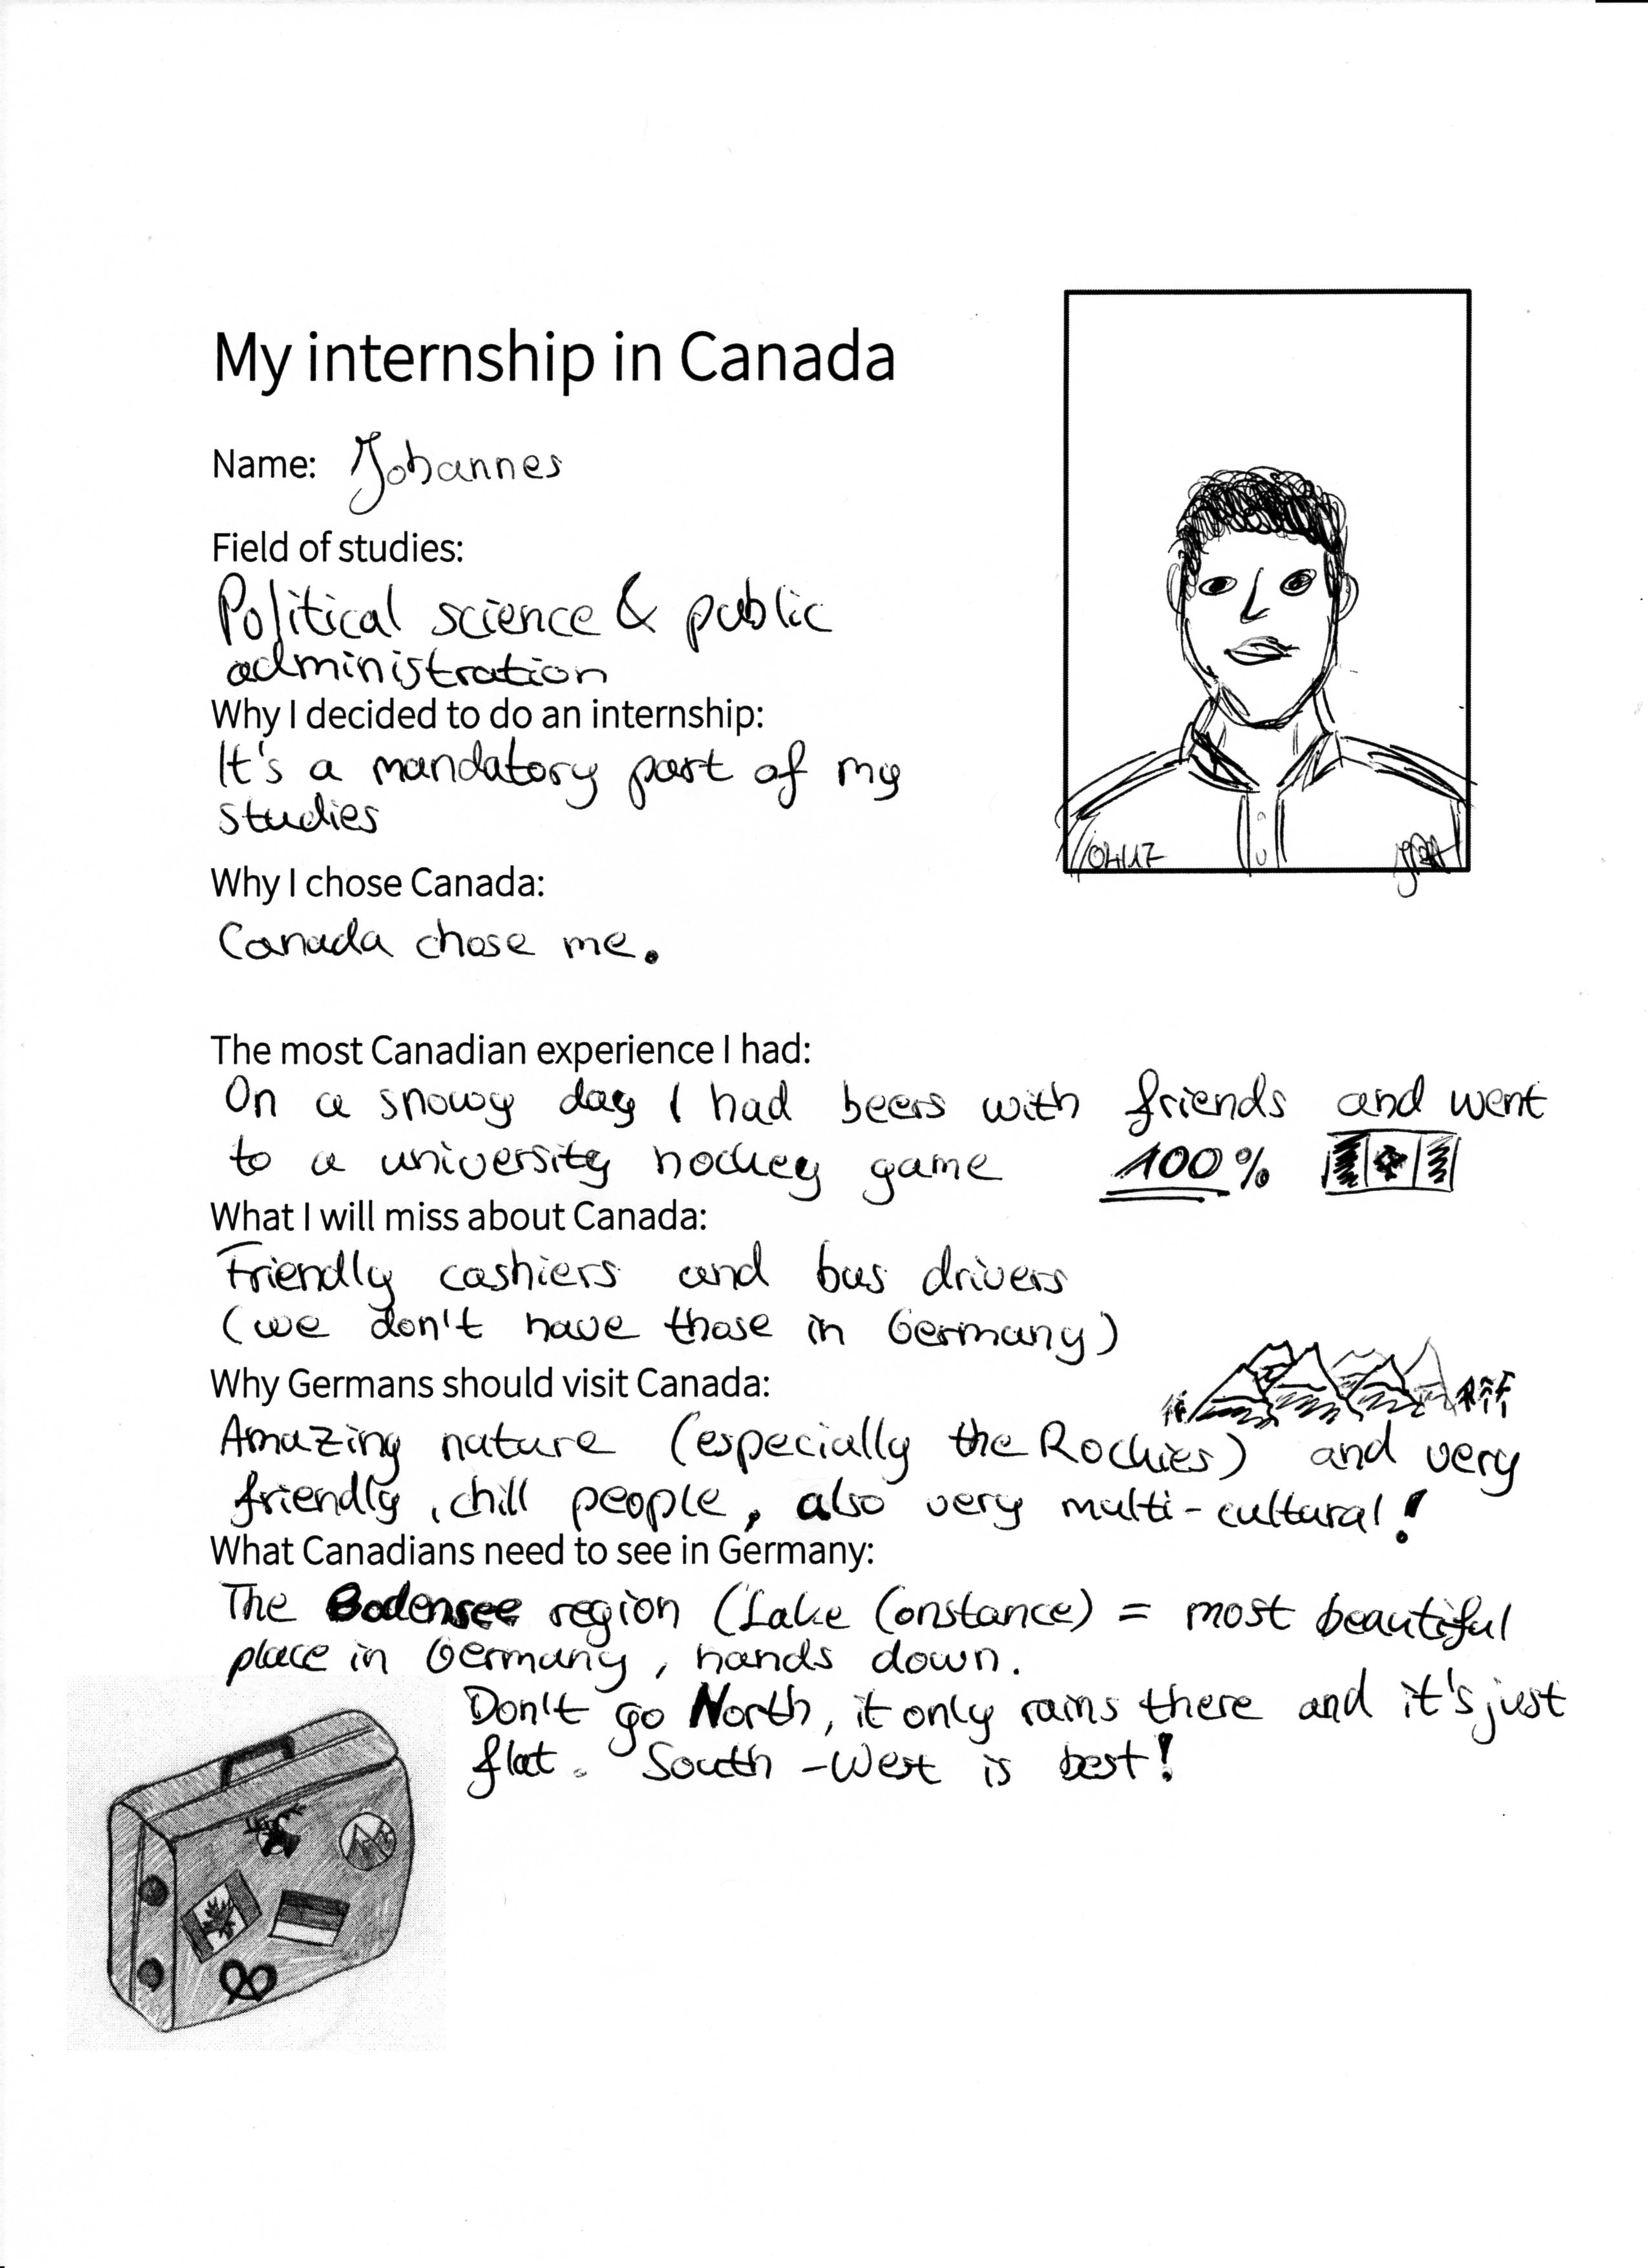 My internship in Canada
Name: Johannes
Field of studies:
Political science & public
administration
Why I decided to do an internship:
It's a mandatory part of my
studies
04/17
Why I chose Canada:
Canada chose me.
The most Canadian experience I had:
On a snowy day I had beers with friends and went
to a university hockey game 100%
What I will miss about Canada:
Friendly cashiers and bus drivers
(we don't have those in Germany)
Why Germans should visit Canada:
Amazing nature (especially the Rockies) and very
friendly, chill people, also very multi-cultural!
What Canadians need to see in Germany:
The Bodensee region (Lake Constance) = most beautiful
place in Germany, hands down.
Don't go North, it only rains there and it's just
flat. South-West is best!